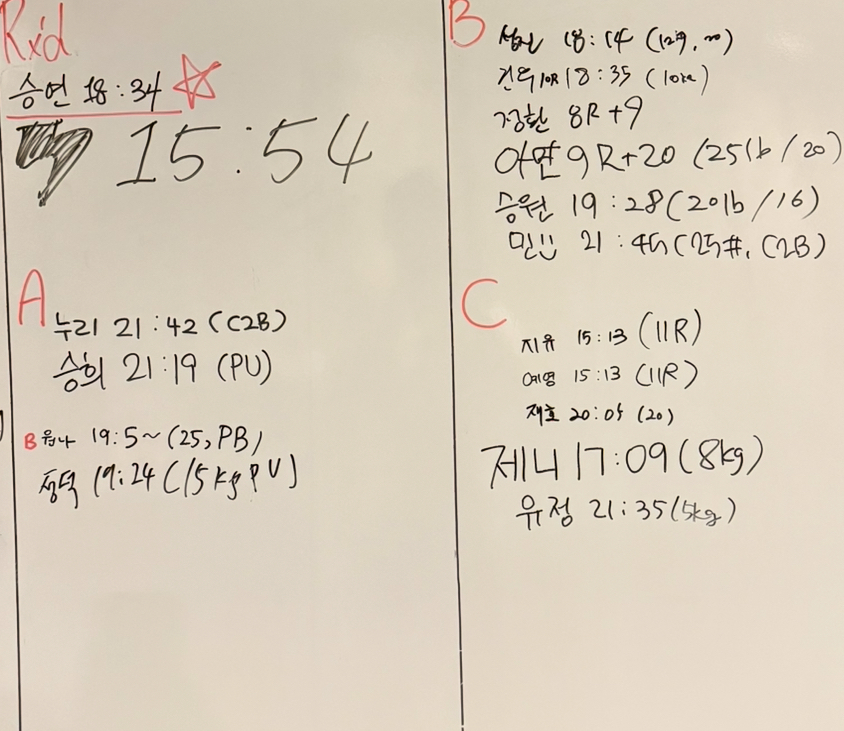 Rx'd
승연 18:34
15:54
A
누리 21:42 (C2B)
승희 21:19 (PU)
B 원나 19:5~ (25, PB)
정덕 19:24 (15kg PU)
B
18:14
건우 10R 18:35 (10kg)
정환 8R+9
아연 9R+20 (25lb/20)
승원 19:28 (20lb/16)
민 21:45 (25#, C2B)
C
지유 15:13 (11R)
예영 15:13 (11R)
재호 20:05 (20)
제니 17:09 (8kg)
유정 21:35 (5kg)